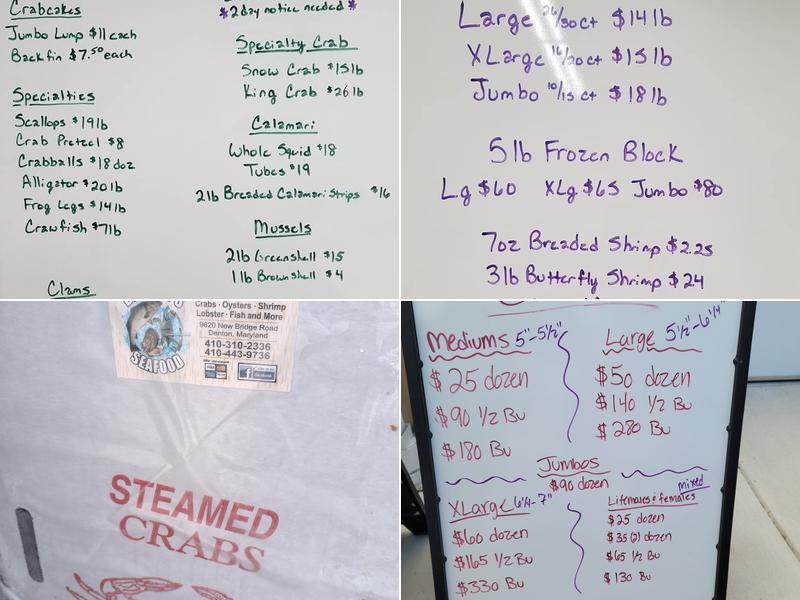 Crabcakes
Jumbo Lump $11 each
Backfin $7.50 each
Specialties
Scallops $19lb
Crab Pretzel $8
Crabballs $18 doz
Alligator $20lb
Frog Legs $14lb
Crawfish $7lb
Clams
*2day notice needed*
Specialty Crab
Snow Crab $15lb
King Crab $26lb
Calamari
Whole Squid $18
Tubes $19
2lb Breaded Calamari Strips $16
Mussels
2lb Greenshell $15
1lb Brownshell $4
Large 26/30ct $14lb
XLarge 16/20ct $15lb
Jumbo 10/15ct $18lb
5lb Frozen Block
Lg $60 XLg $65 Jumbo $80
7oz Breaded Shrimp $2.25
3lb Butterfly Shrimp $24
SEAFOOD
Crabs · Oysters · Shrimp
Lobster · Fish and More
9620 New Bridge Road
Denton, Maryland
410-310-2336
410-443-9736
facebook
STEAMED
CRABS
Mediums 5"-5½"
$25 dozen
$90 ½ Bu
$180 Bu
Large 5½"-6¼"
$50 dozen
$140 ½ Bu
$280 Bu
Jumbos
$90 dozen
XLarge 6¼-7"
$60 dozen
$165 ½ Bu
$330 Bu
mixed
Litemales & females
$25 dozen
$35 (2) dozen
$65 ½ Bu
$130 Bu